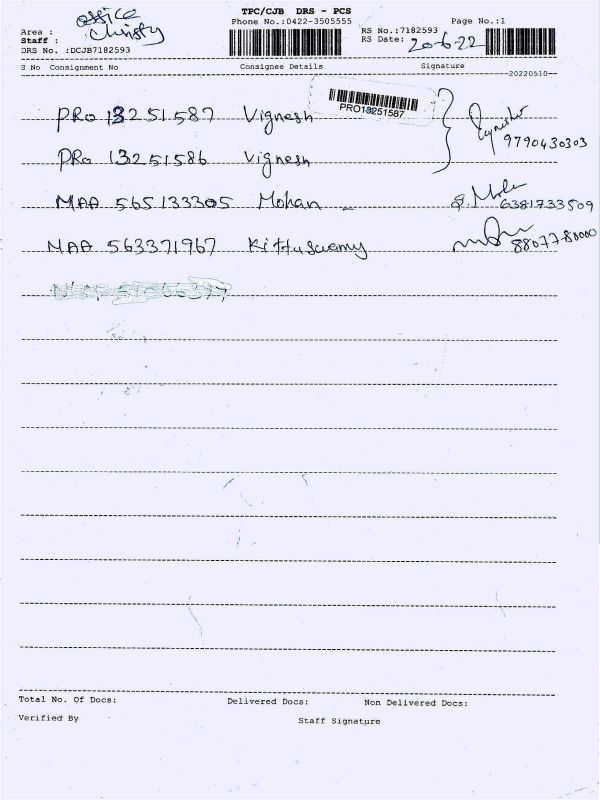 TPC/CJB DRS - PCS
Phone No.:0422-3505555 Page No.:1
Area : office
Staff : Christy
RS No.:7182593
RS Date: 20-6-22
DRS No. :DCJB7182593
S No Consignment No Consignee Details Signature
20220510
PRO 13251587 Vignesh
PRO13251587
9790430303
PRO 13251586 Vignesh
MAA 565133305 Mohan 6381733509
MAA 563371967 Kittuswamy 8807780000
Total No. Of Docs: Delivered Docs: Non Delivered Docs:
Verified By Staff Signature